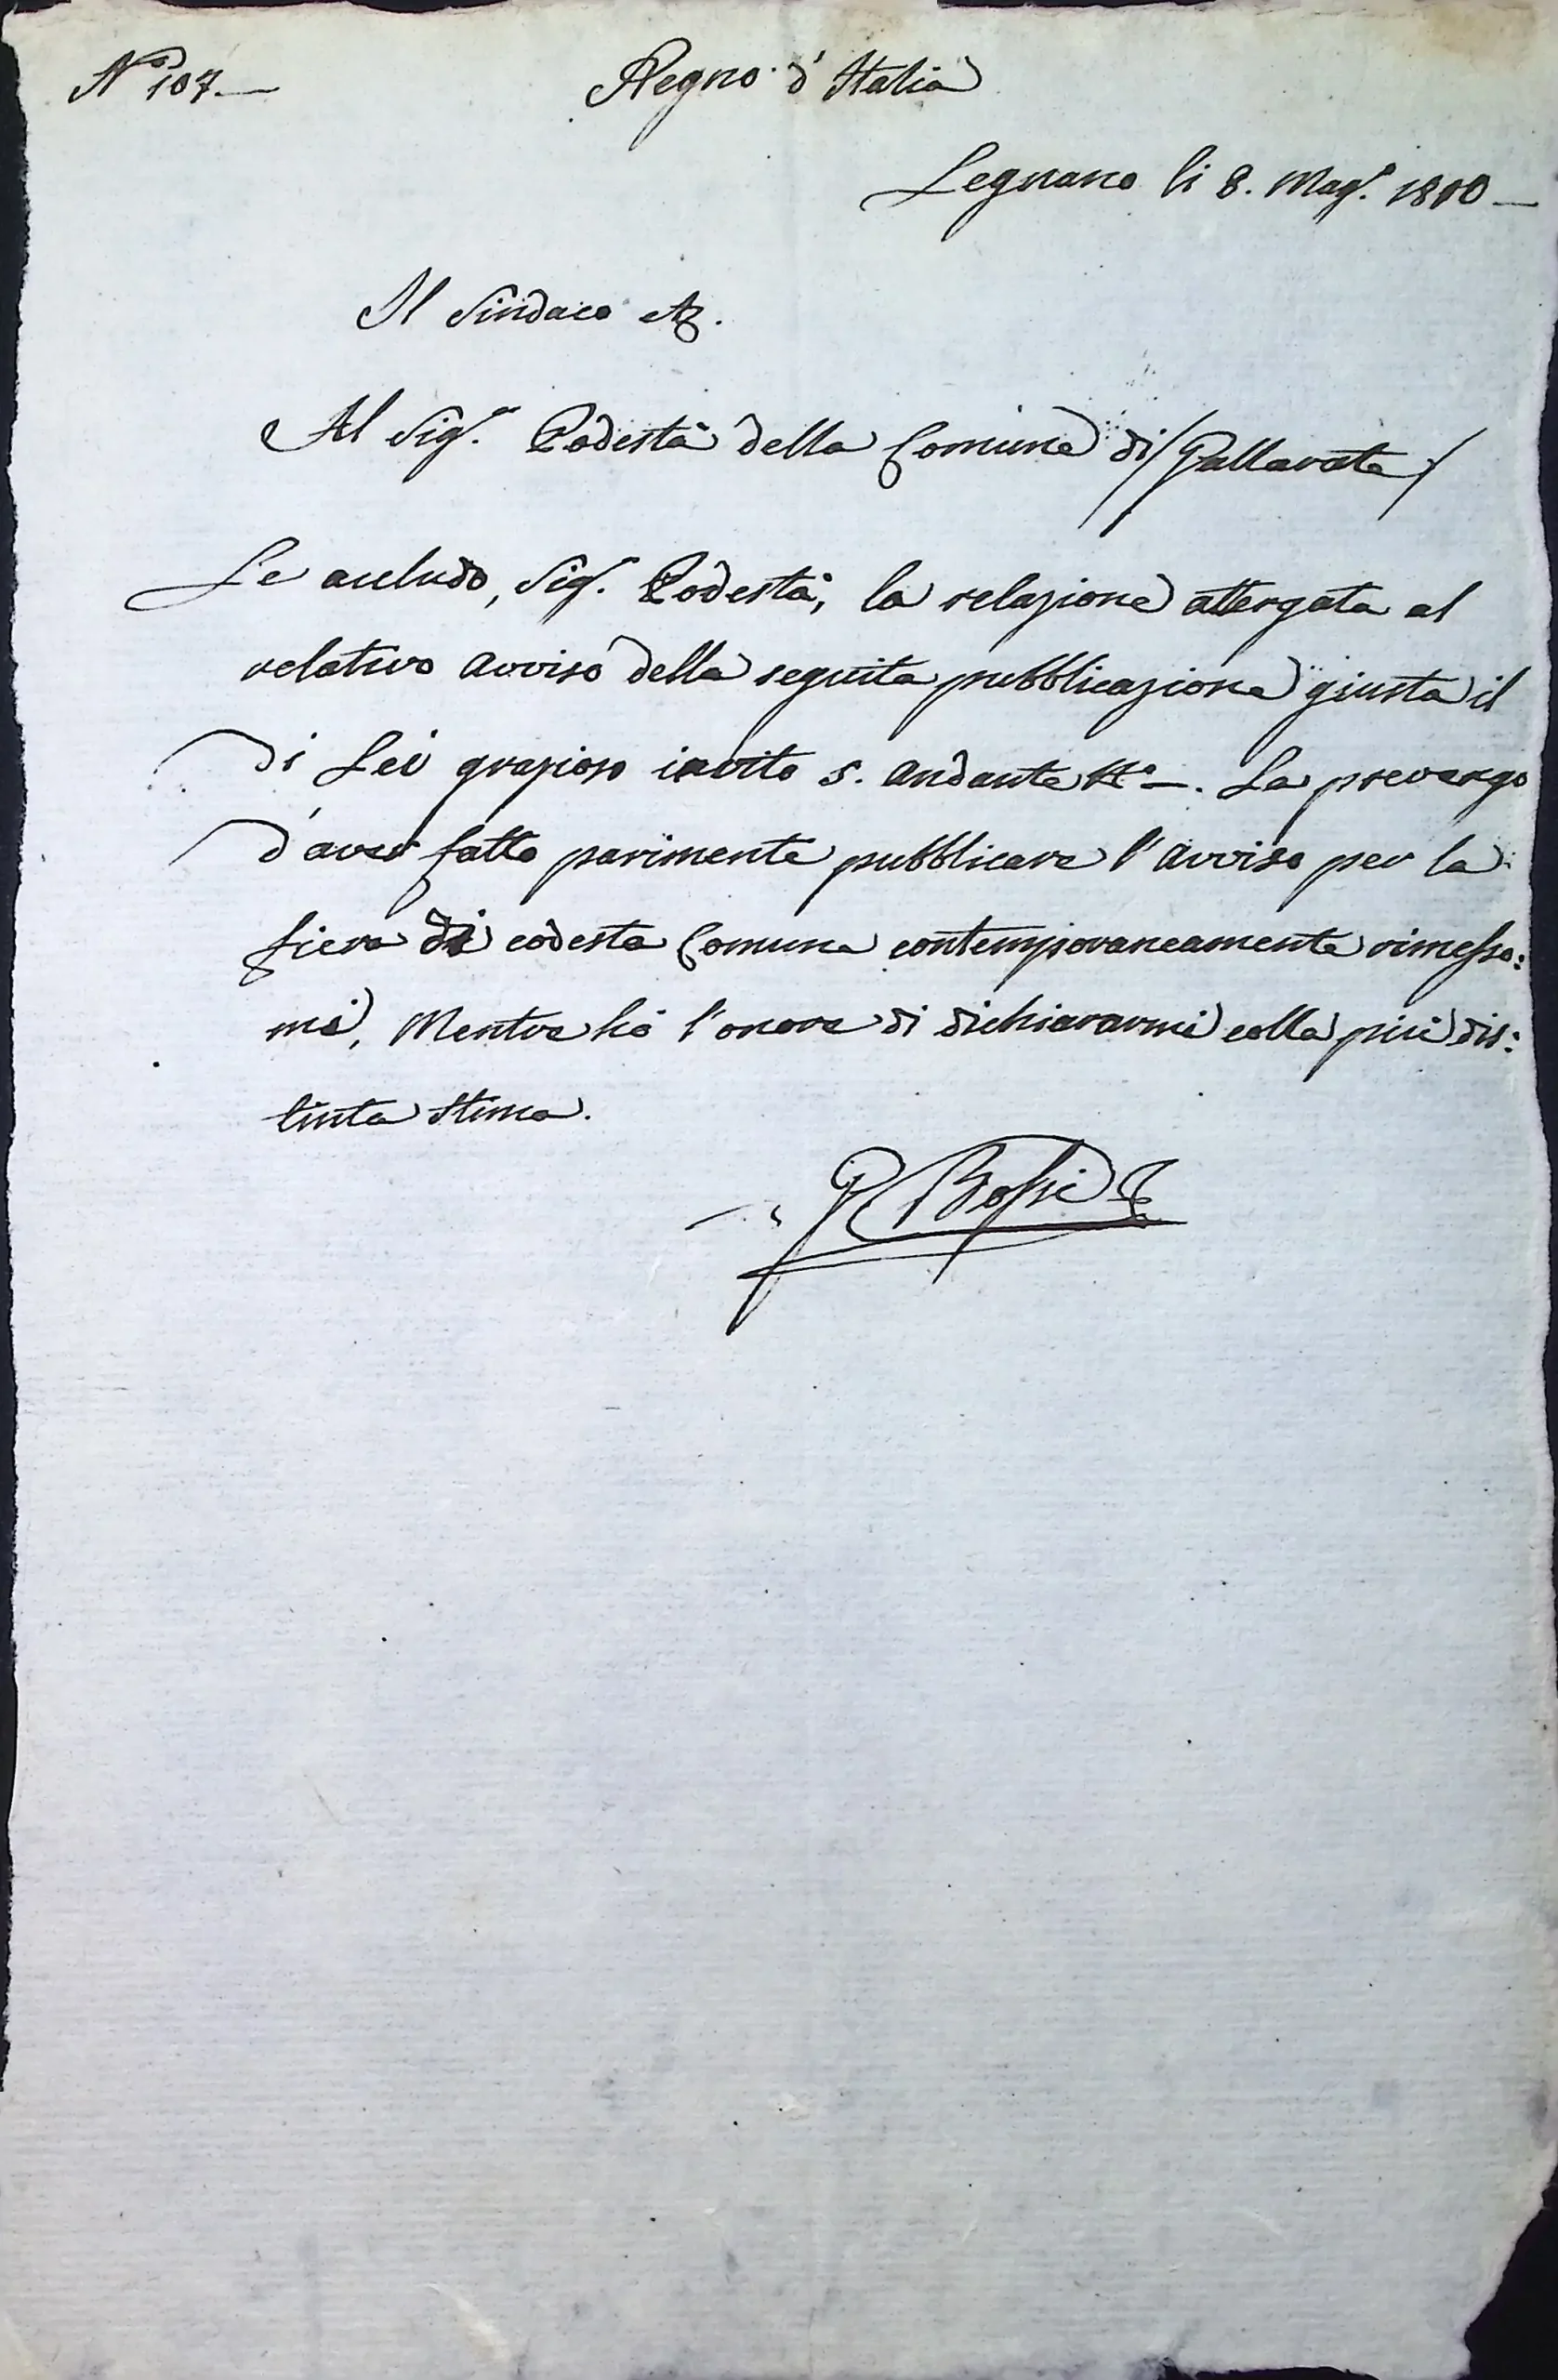 N° 107.
Regno d'Italia
Legnano li 8. Mag.° 1810
Il Sindaco
Al Sig.r Podestà della Comune di Gallarate
Le accludo, Sig.r Podestà, la relazione attergata al
relativo avviso della seguita pubblicazione giusta il
di Lei grazioso invito 5. andante. La prevengo
d'aver fatto parimente pubblicare l'avviso per la
fiera di codesta Comune contemporaneamente rimesso:
mi, Mentre hò l'onore di dichiararmi colla più dis:
tinta stima.
G Bossi